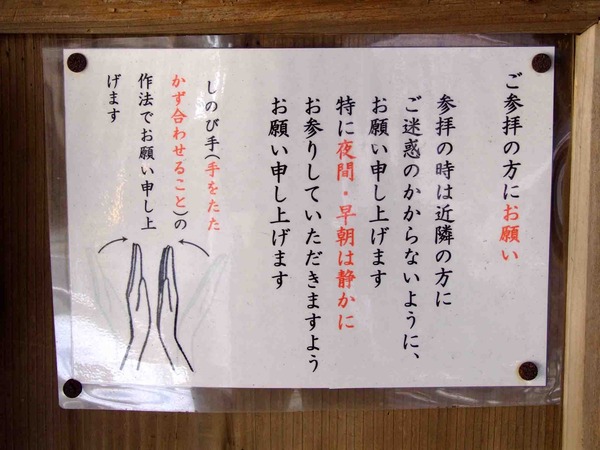 ご参拝の方にお願い
参拝の時は近隣の方に
ご迷惑のかからないように、
お願い申し上げます
特に夜間・早朝は静かに
お参りしていただきますよう
お願い申し上げます
しのび手(手をたた
かず合わせること)の
作法でお願い申し上
げます